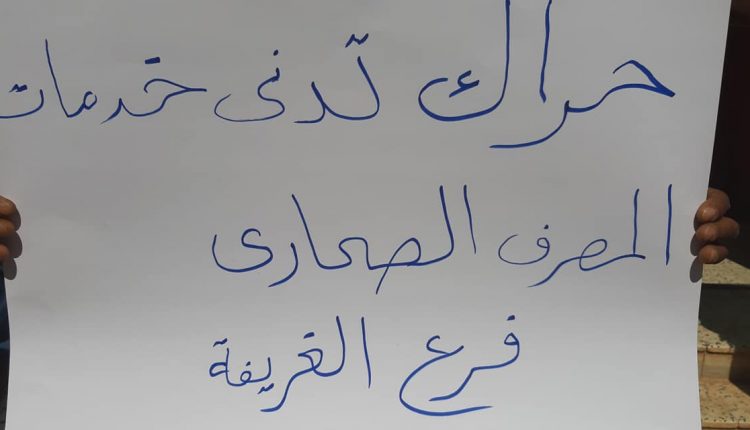 حراك تدنى خدمات
المصرف الصحارى
فرع الغريفة